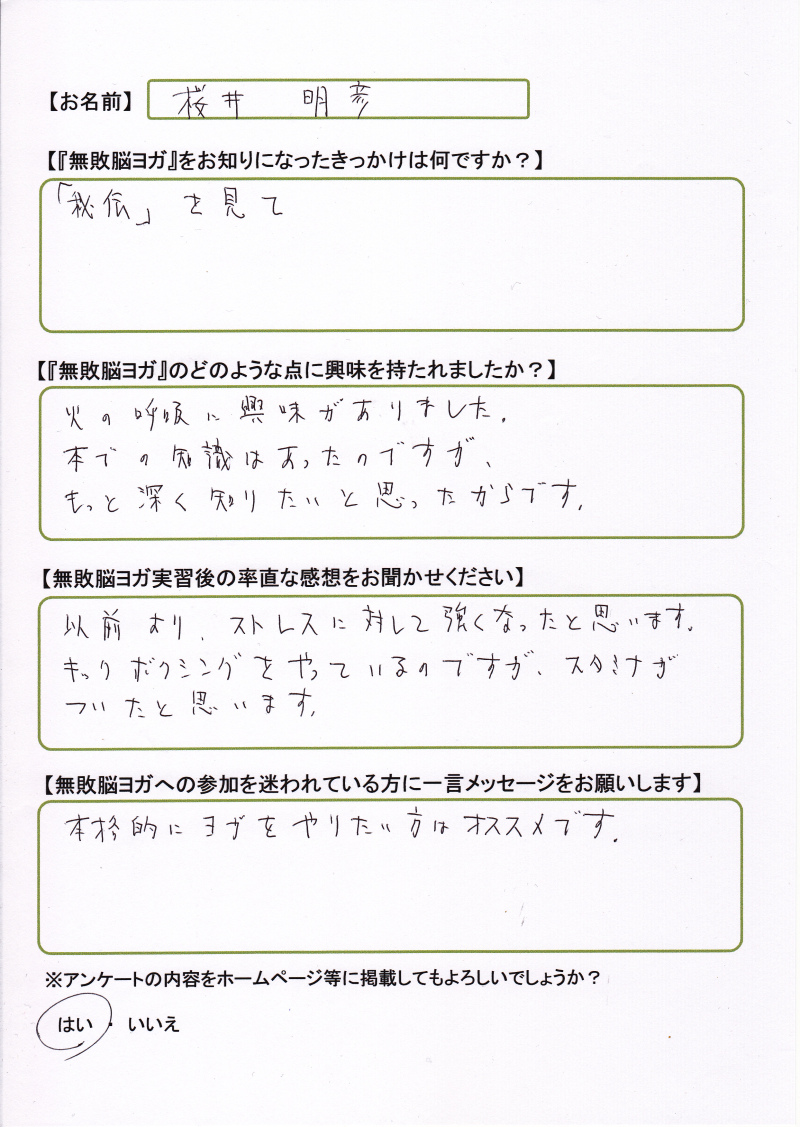 【お名前】 桜井 明彦
【『無敗脳ヨガ』をお知りになったきっかけは何ですか？】
「秘伝」を見て
【『無敗脳ヨガ』のどのような点に興味を持たれましたか？】
火の呼吸に興味がありました。
本での知識はあったのですが、
もっと深く知りたいと思ったからです。
【無敗脳ヨガ実習後の率直な感想をお聞かせください】
以前より、ストレスに対して強くなったと思います。
キックボクシングをやっているのですが、スタミナが
ついたと思います。
【無敗脳ヨガへの参加を迷われている方に一言メッセージをお願いします】
本格的にヨガをやりたい方はオススメです。
※アンケートの内容をホームページ等に掲載してもよろしいでしょうか？
はい ・ いいえ